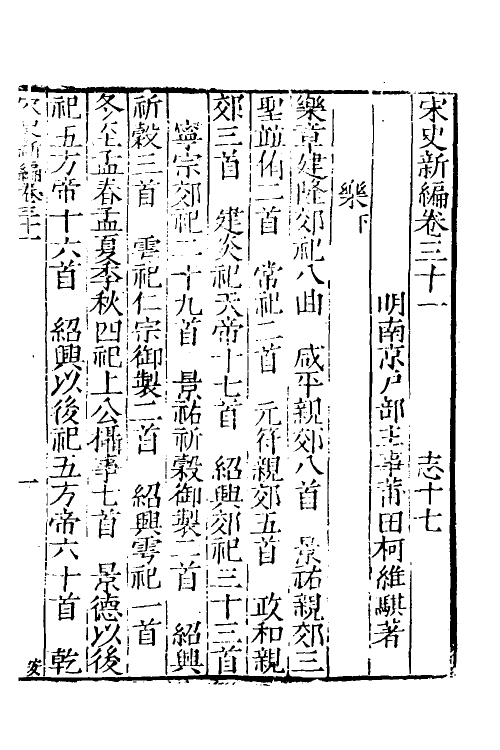 宋史新編卷三十一　志十七
明南京戶部主事莆田柯維騏著
樂下
樂章建隆郊祀八曲　咸平親郊八首　景祐親郊三
聖並侑二首　常祀二首　元符親郊五首　政和親
郊三首　建炎祀天帝十七首　紹興郊祀三十三首
寧宗郊祀二十九首　景祐祈穀御製二首　紹興
祈穀三首　雩祀仁宗御製二首　紹興雩祀一首
冬至孟春孟夏季秋四祀上公攝事七首　景德以後
祀五方帝十六首　紹興以後祀五方帝六十首　乾
宋史新編卷三十一　一